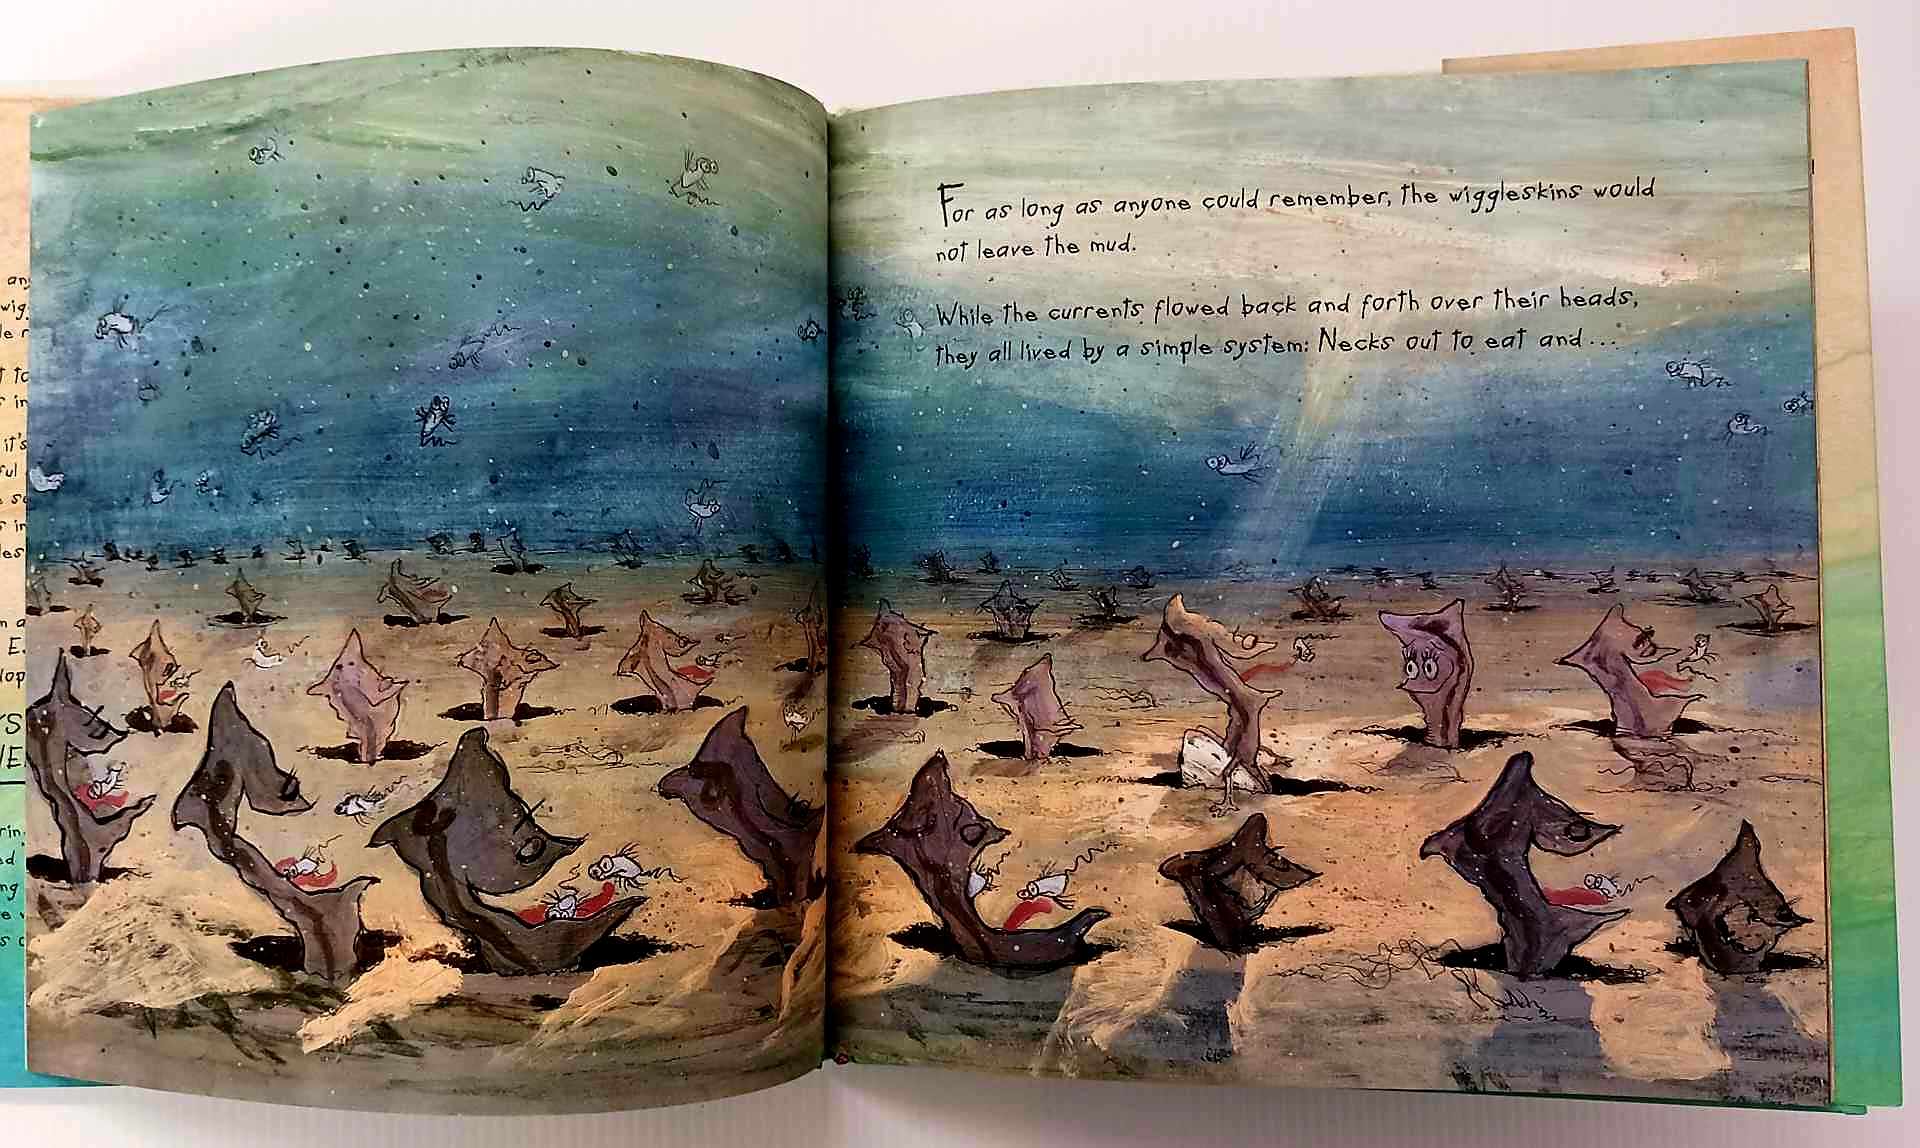 For as long as anyone could remember, the wiggleskins would
not leave the mud.
While the currents flowed back and forth over their heads,
they all lived by a simple system: Necks out to eat and...